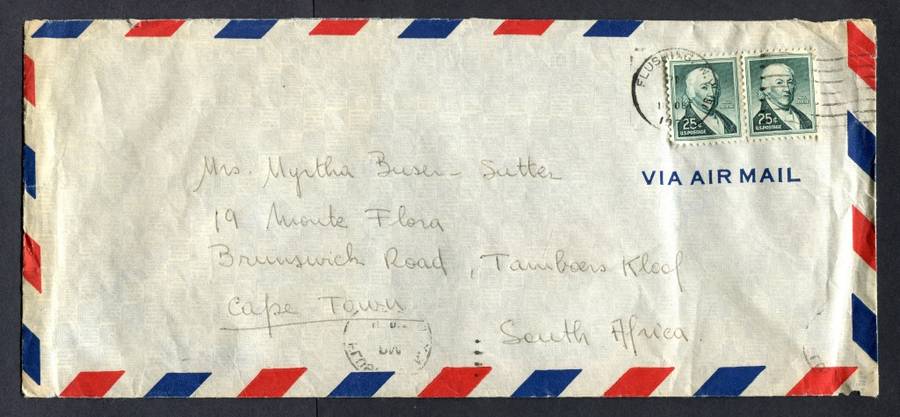 FLUSHING
25¢
U.S. POSTAGE
25¢
U.S. POSTAGE
VIA AIR MAIL
Mrs. Myrtha Buser-Sutter
19 Monte Flora
Brunswick Road, Tamboers Kloof
Cape Town
South Africa